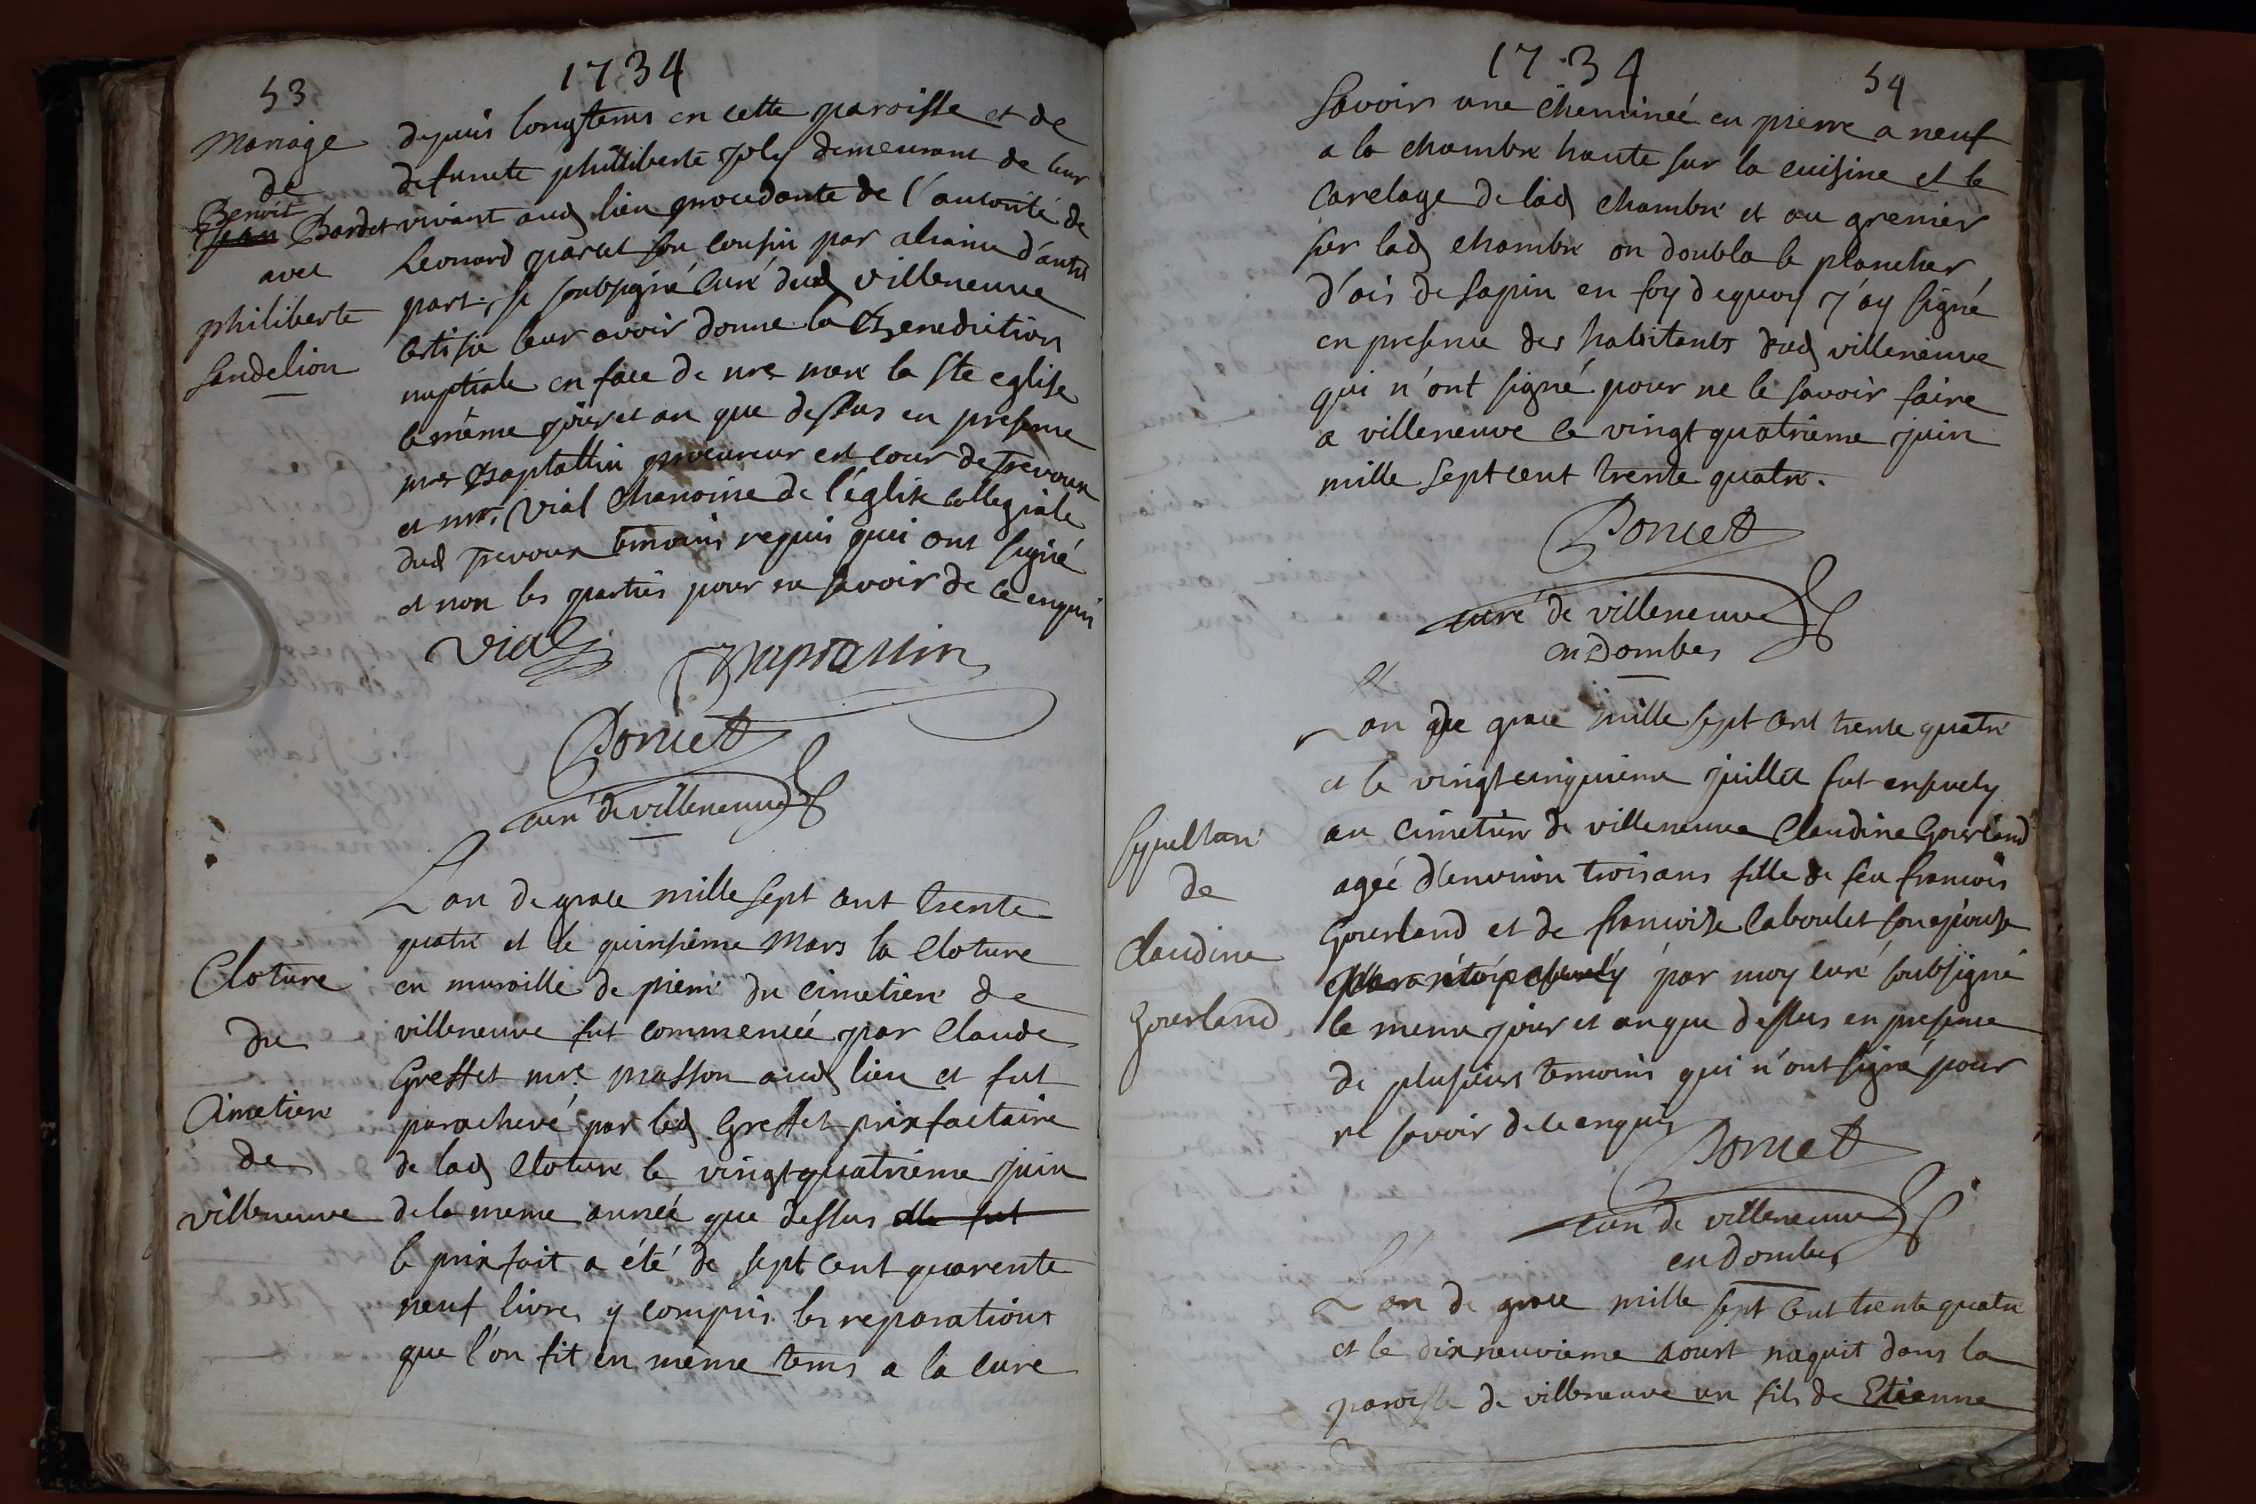 1734
53
Mariage
de
Benoit
Jean Bardet
avec
philiberte
Sandelion
depuis longtems en cette paroisse et de
defuncte philliberte Joly demeurant de leur
vivant aud lieu procedante de l'autorité de
Leonard paret son cousin par aliaince d'autre
part, je soubsigné curé dud villeneuve
certifie leur avoir donné la Benediction
nuptiale en face de nre mere la Ste eglise
le même jour et an que dessus en presence
mre Baptallin procureur en cour de Trevoux
et mre Vial Chanoine de l'église Collegiale
dud Trevoux temoins requis qui ont signé
et non les parties pour ne savoir de ce enquis
Vial Baptallin
Poncet
curé de villeneuve
Cloture
du
Cimetiere
de
villeneuve
L'an de grace mille sept cent trente
quatre et le quinsième Mars la Cloture
en muraille de pierre du cimetiere de
villeneuve fut commencée par Claude
Greffet mre masson aud lieu et fut
parachevé par led Greffet prixfactaire
de lad Cloture le vingtquatrième juin
de la meme année que dessus elle fut
le prixfait a été de sept cent quarente
neuf livres y compris les reparations
que l'on fit en même tems a la cure
1734
54
Savoir une cheminée en pierre a neuf
a la chambre haute sur la cuisine et le
carelage de lad chambre et au grenier
sur lad chambre on doubla le plancher
d'ais de sapin en foy dequoy j'ay signé
en presence des habitants dud villeneuve
qui n'ont signé pour ne le savoir faire
a villeneuve ce vingt quatrième juin
mille septcent trente quatre.
Poncet
curé de villeneuve
en Dombes
Sepulture
de
Claudine
Gourland
L'an de grace mille sept cent trente quatre
et le vingtcinquieme juillet fut ensevely
au cimetiere de villeneuve Claudine Gourland
agée d'environ trois ans fille de feu francois
Gourland et de francoise Caboulet son epouse
par moy curé soubsigné
le meme jour et an que dessus en presence
de plusieurs temoins qui n'ont signé pour
ne savoir de ce enquis
Poncet
curé de villeneuve
en Dombes
L'an de grace mille sept cent trente quatre
et le dixneuvieme aoust naquit dans la
paroisse de villeneuve un fils de Etienne